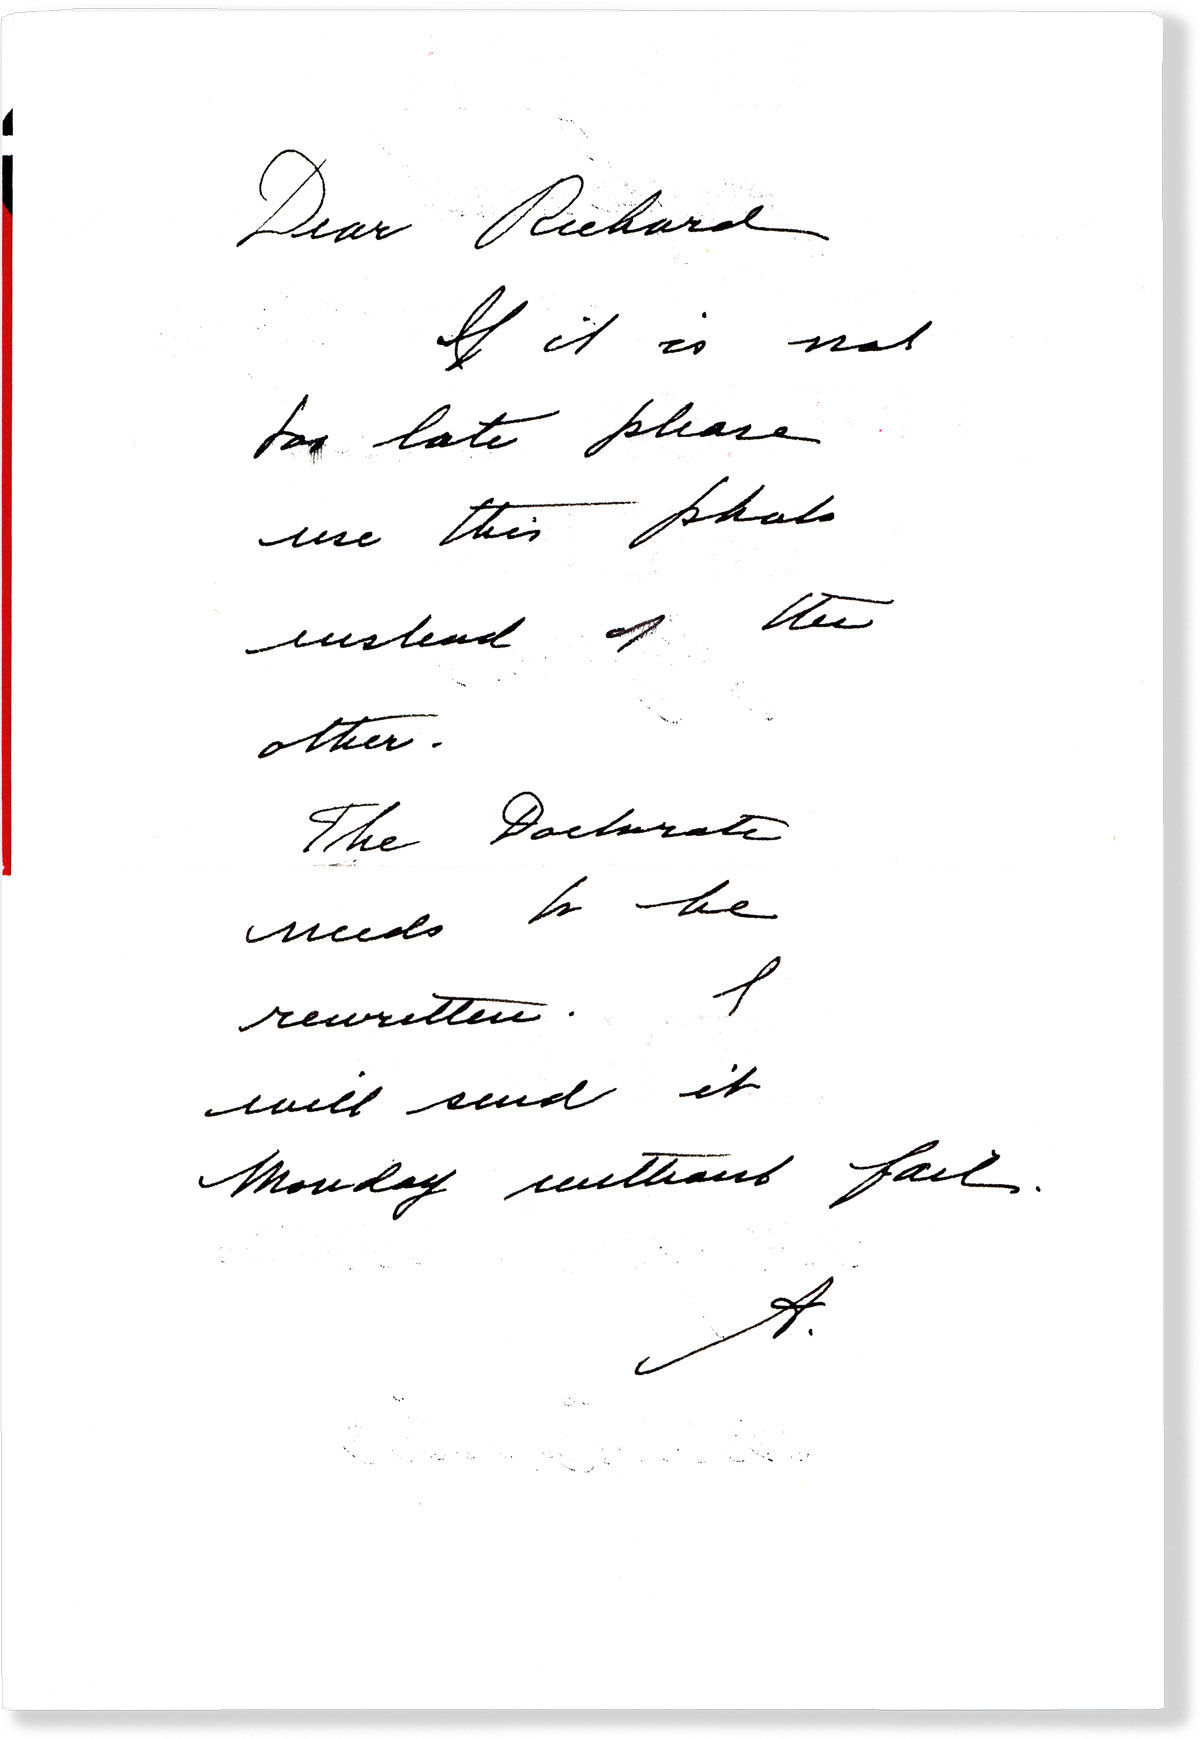 Dear Richard
If it is not
too late please
use this photo
instead of the
other.
The Doctorate
needs to be
rewritten. I
will send it
Monday without fail.
A.